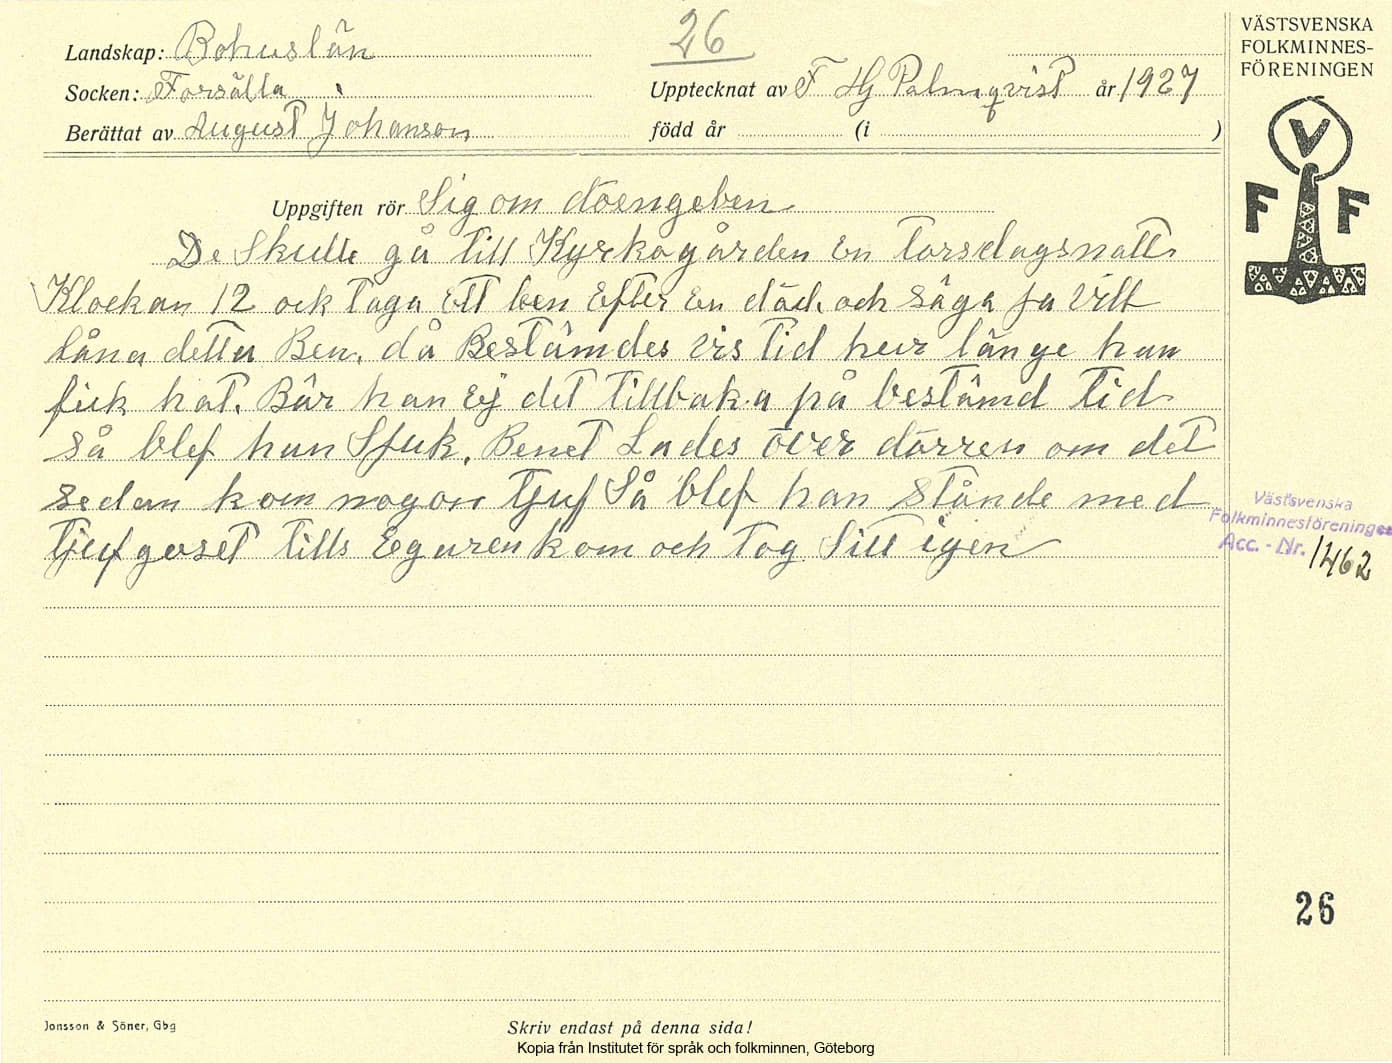 Landskap: Bohuslän
26
Socken: Forsälla
Upptecknat av F Hj Palmqvist år 1927
Berättat av August Johanson
född år (i )
VÄSTSVENSKA
FOLKMINNES-
FÖRENINGEN
V
F F
Uppgiften rör Sig om döengeben
De Skulle gå till Kyrkogården En Torsdagsnatt
Klockan 12 ock Taga Ett ben Efter En död och säga ja vill
låna detta Ben. då Bestämdes vis tid hur länge han
fick hat. Bär han Ej det Tillbaka på bestämd Tid
så blef han Sjuk. Benet Lades över dörren om det
sedan kom nogon Tjuf Så blef han Stånde med
Tjufgoset Tills Egaren kom och Tog Sitt igen
Västsvenska
Folkminnesföreningen
Acc. - Nr. 1462
26
Jonsson & Söner, Gbg
Skriv endast på denna sida!
Kopia från Institutet för språk och folkminnen, Göteborg